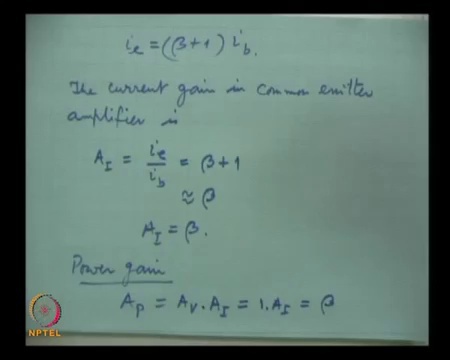 i_e = (β+1) i_b.
The current gain in common emitter
amplifier is
A_I = i_e/i_b = β+1
≈ β
A_I = β.
Power gain
A_p = A_V . A_I = 1. A_I = β
NPTEL